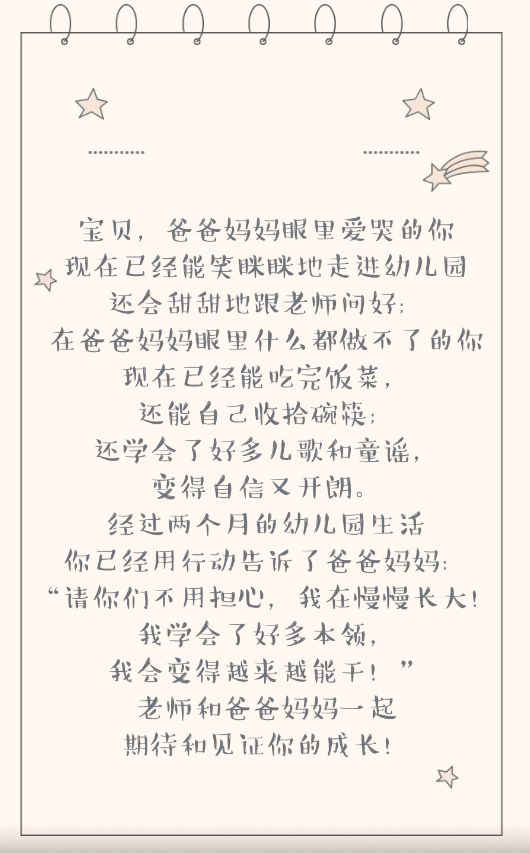 宝贝，爸爸妈妈眼里爱哭的你
现在已经能笑眯眯地走进幼儿园
还会甜甜地跟老师问好；
在爸爸妈妈眼里什么都做不了的你
现在已经能吃完饭菜，
还能自己收拾碗筷；
还学会了好多儿歌和童谣，
变得自信又开朗。
经过两个月的幼儿园生活
你已经用行动告诉了爸爸妈妈：
“请你们不用担心，我在慢慢长大！
我学会了好多本领，
我会变得越来越能干！”
老师和爸爸妈妈一起
期待和见证你的成长！